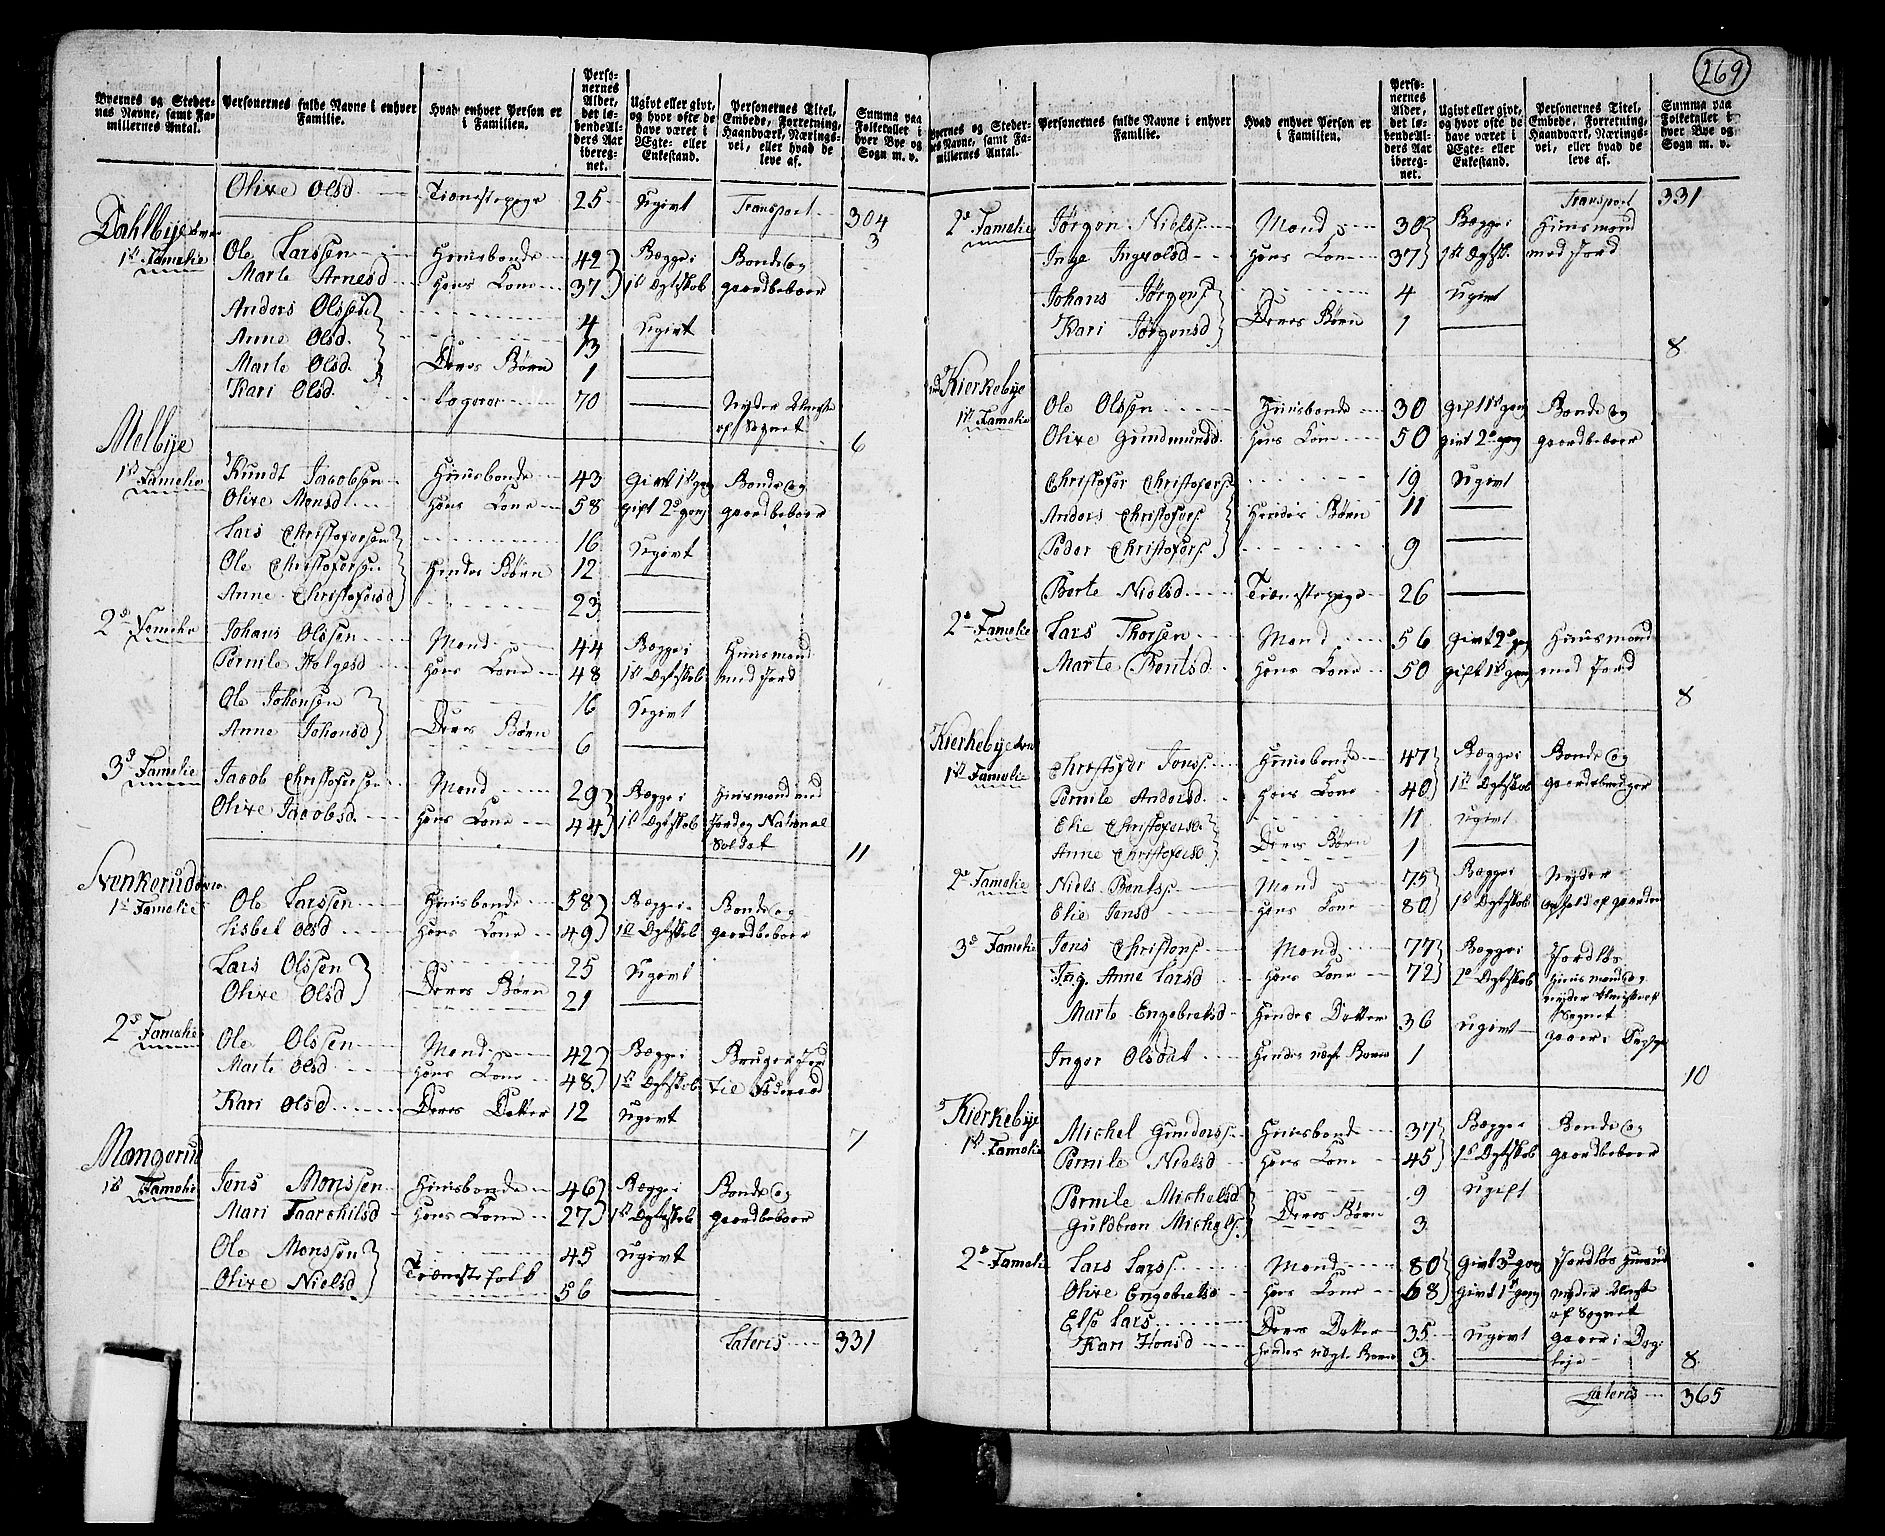 269
Byernes og Stedernes Navne, samt Familliernes Antal. | Personernes fulde Navne i enhver Familie. | Hvad enhver Person er i Familien. | Personernes Alder, det løbende Alders Aar iberegnet. | Ugivt eller givt, og hvor ofte de have været i Ægte- eller Enkestand. | Personernes Titel, Embede, Forretning, Haandværk, Næringsvei, eller hvad de leve af. | Summa paa Folketallet i hver Bye og Sogn m. v.
Olive Olsd. | Tienistepige | 25 | Ugivt | Transport | 304
3
Dahlbye
1st Famelie | Ole Larssen | Huusbonde | 42 | Begge i | Bonde og
Marte Arnesd | Hans Kone | 37 | 1st Ægteskab | gaardbeboer
Anders Olssen | 4 | Ugivt
Anne Olsd. | 13
Marte Olsd. | Deres Børn | 1
Kari Olsd. | Logerer | 70 | Nyder Almisse
af Sognet | 6
Melbye
1st Famelie | Knudt Jacobsen | Huusbonde | 43 | Givt 1st gang | Bonde og
Olive Monsd. | Hans Kone | 58 | gift 2d gang | gaardbeboer
Lars Christofersen | 16 | Ugivt
Ole Christofersen | Hendes Børn | 12
Anne Christofersd | 23
2d Famelie | Johans Olssen | Mand | 44 | Begge i | Huusmand
Pernile Helgesd | Hans Kone | 48 | 1st Ægteskab | med Jord
Ole Johansen | 16 | Ugivt
Anne Johansd | Deres Børn | 6
3d Famelie | Jacob Christofersen | Mand | 29 | Begge i | Huusmand med
Olive Jacobsd. | Hans Kone | 44 | 1st Ægteskab | Jord og National
Soldat | 11
Svenkerud
1st Famelie | Ole Larssen | Huusbonde | 58 | Begge i | Bonde og
Lisbet Olsd | Hans Kone | 49 | 1st Ægteskab | gaardbeboer
Lars Olssen | 25 | Ugivt
Olive Olsd | Deres Børn | 21
2d Famelie | Ole Olssen | Mand | 42 | Begge i | Bruger Jord
Marte Olsd. | Hans Kone | 48 | 1st Ægteskab | til
Kari Olsd | Deres Datter | 12 | Ugivt
7
Mangerud
1st Famelie | Jens Monssen | Huusbonde | 46 | Begge i | Bonde og
Mari Taarchilsd | Hans Kone | 27 | 1st Ægteskab | gaardbeboer
Ole Monssen | 45 | Ugivt
Olive Nielsd | Tienistefolk | 56
Lateris | 331
Byernes og Stedernes Navne, samt Familliernes Antal. | Personernes fulde Navne i enhver Familie. | Hvad enhver Person er i Familien. | Personernes Alder, det løbende Alders Aar iberegnet. | Ugivt eller givt, og hvor ofte de have været i Ægte- eller Enkestand. | Personernes Titel, Embede, Forretning, Haandværk, Næringsvei, eller hvad de leve af. | Summa paa Folketallet i hver Bye og Sogn m. v.
Transport | 331
2d Famelie | Jørgen Niels | Mand | 30 | Begge i | Huusmand
Inge Ingvolsd | Hans Kone | 37 | 1st Ægtsk. | med Jord
Johans Jørgens | 4 | Ugivt
Kari Jørgensd | Deres Børn | 1
8
Kierkebye
1st Famelie | Ole Olssen | Huusbonde | 30 | gift 1st gang | Bonde og
Olive Gundmunds | Hans Kone | 50 | givt 2d gang | gaardbeboer
Christofer Christofers | 19 | Ugivt
Anders Christofers | Hendes Børn | 11
Peder Christofers | 9
Berte Nielsd | Tienistepige | 26
2d Famelie | Lars Thorsen | Mand | 56 | givt 2d gang | Huusmand
Marte Bentsd | Hans Kone | 50 | gift 1st gang | med Jord
8
Kierkebye
1st Famelie | Christofer Jens | Huusbonde | 47 | Begge i | Bonde og
Pernile Andersd. | Hans Kone | 40 | 1st Ægteskab | gaardebruger
Elie Christofersd. | 11 | Ugivt
Anne Christofersd | Deres Børn | 1
2d Famelie | Niels Bents | Mand | 75 | Begge i | Nyder
Elie Jensd | Hans Kone | 80 | 1st Ægteskab | ophold af gaarden
3d Famelie | Jens Christens | Mand | 77 | Begge i | Jordløs
Ing. Anne Larsd | Hans Kone | 72 | 1st Ægteskab | Huusmand og
nyder Almisse af
Sognet
Marte Engebretsd | Hendes Datter | 36 | ugivt | gaaer i
Inger Olsdat | Hendes uægte Barn | 1
10
Kierkebye
1st Famelie | Michel Gunders | Huusbonde | 37 | Begge i | Bonde og
Pernile Nielsd | Hans Kone | 45 | 1st Ægteskab | gaardbeboer
Pernile Michelsd | 9 | Ugift
Guldbran Michels | Deres Børn | 3
2d Famelie | Lars Lars | Mand | 80 | Givt 3d gang | Jordløs
Olive Engebretsd | Hans Kone | 68 | Givt 1st gang | nyder Almisse
af Sognet
Else Lars | Deres Datter | 35 | Ugivt | gaaer i Dag
Kari Hansd | Hendes uægte Barn | 3 | leje | 8
Lateris | 365